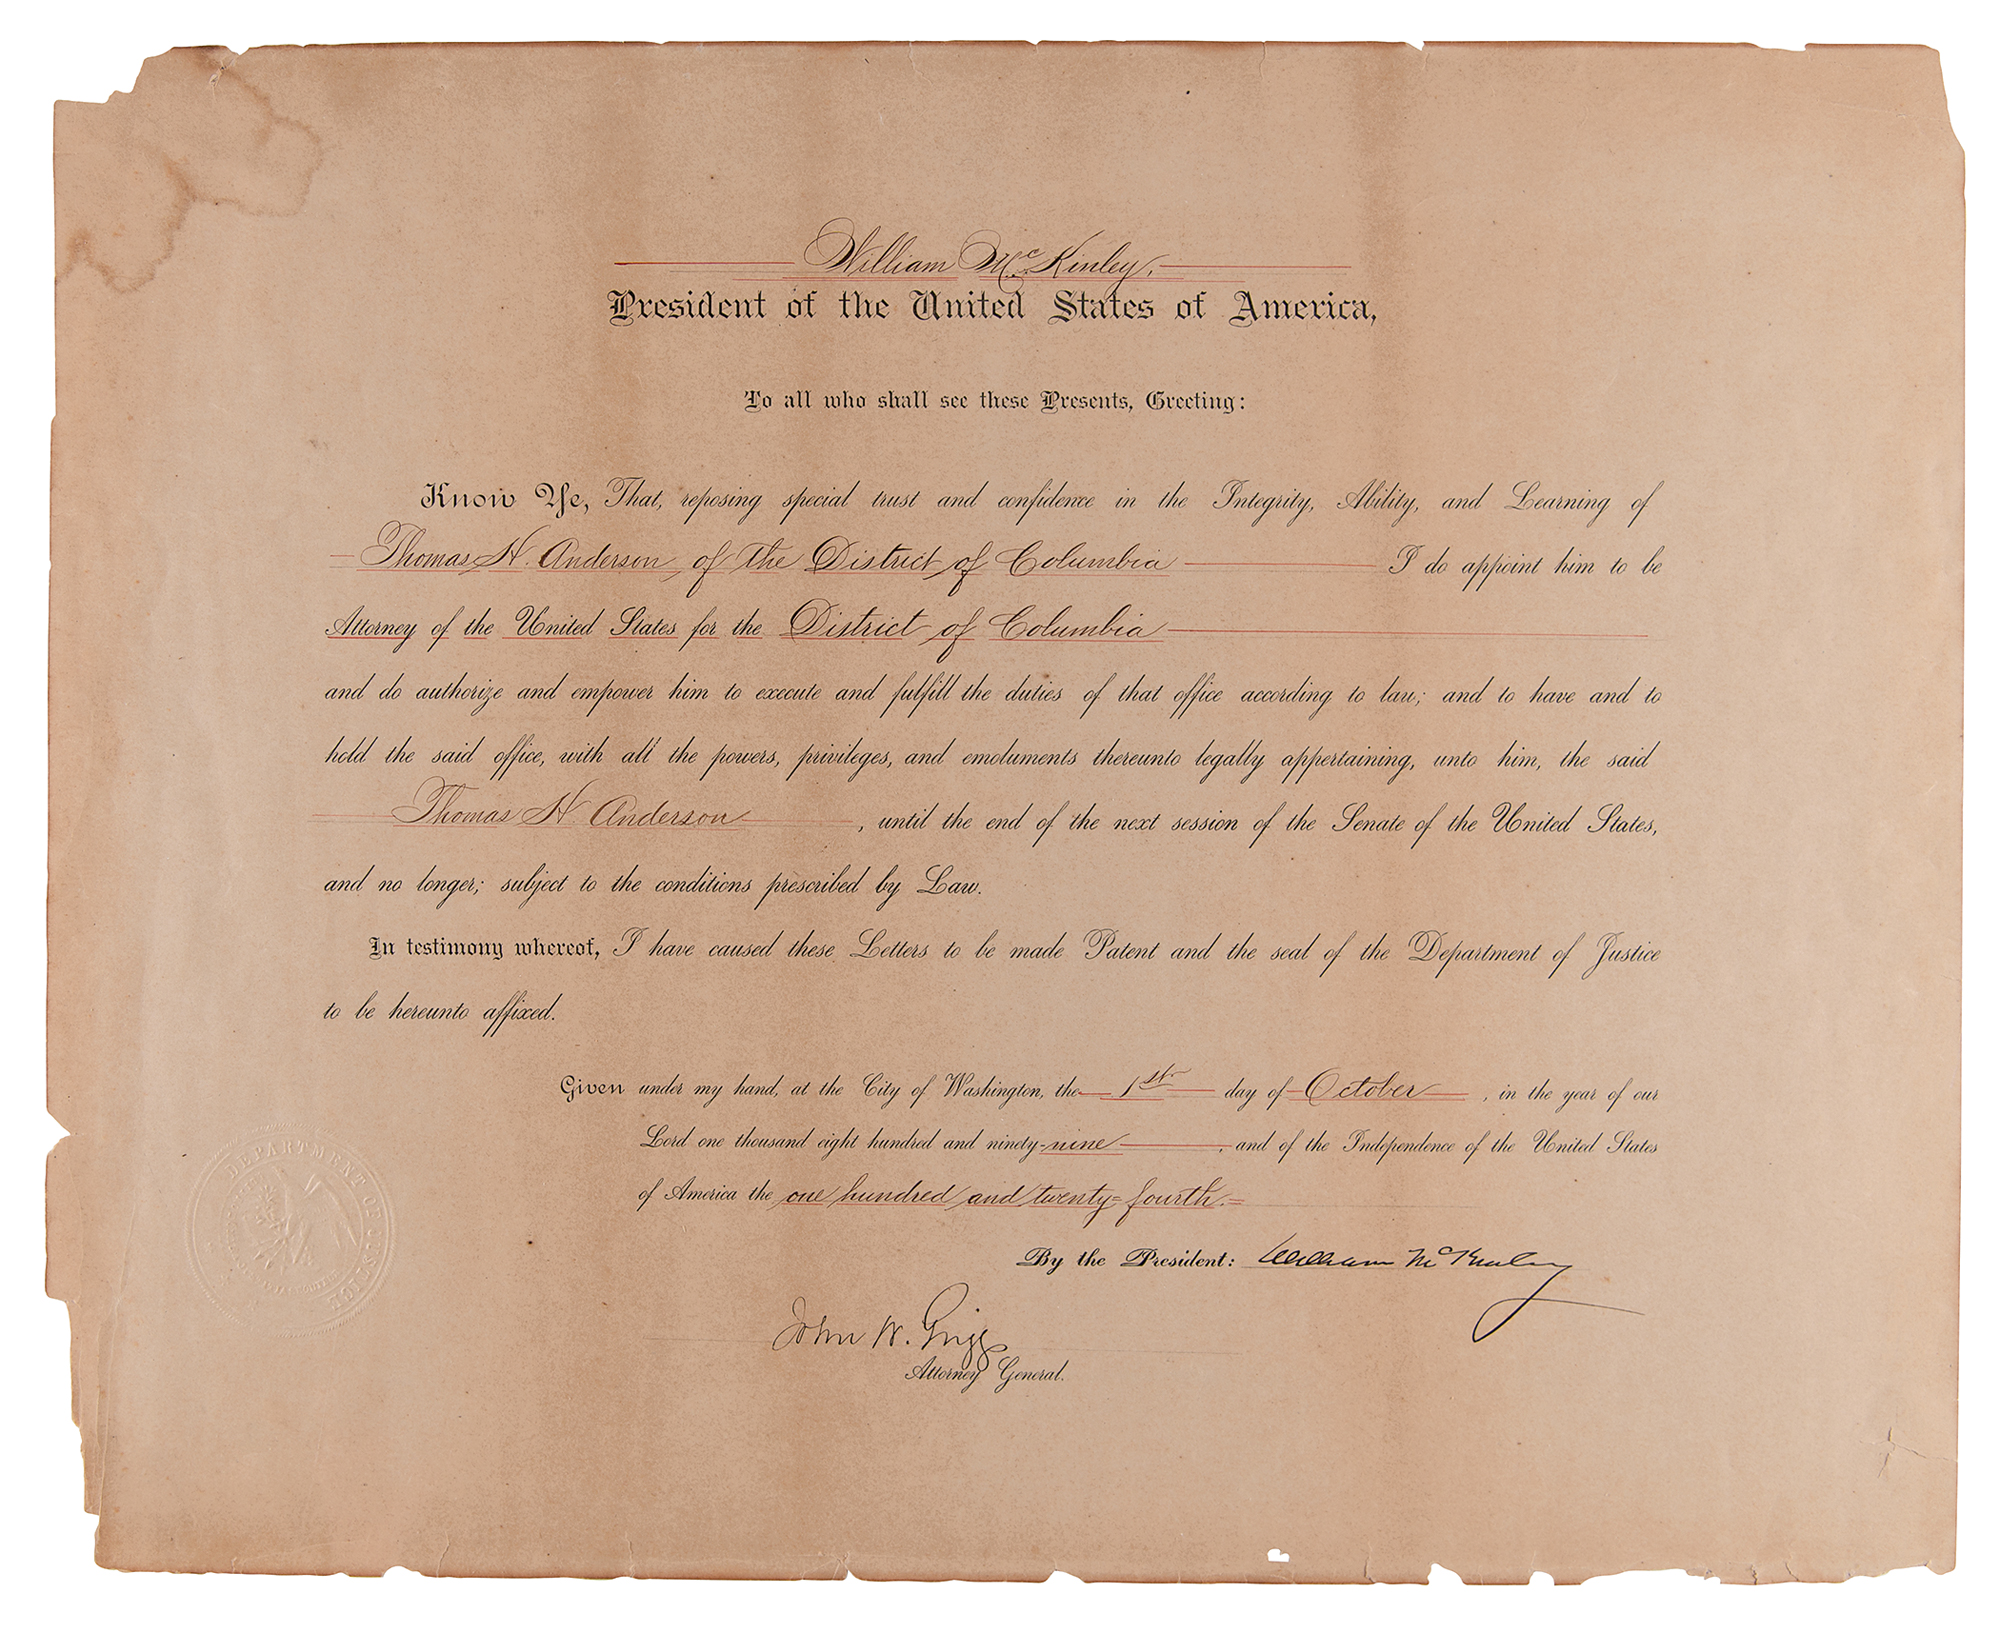 William McKinley,
President of the United States of America,
To all who shall see these Presents, Greeting:
Know Ye, That, reposing special trust and confidence in the Integrity, Ability, and Learning of
Thomas H. Anderson, of the District of Columbia I do appoint him to be
Attorney of the United States for the District of Columbia
and do authorize and empower him to execute and fulfill the duties of that office according to law; and to have and to
hold the said office, with all the powers, privileges, and emoluments thereunto legally appertaining, unto him, the said
Thomas H. Anderson, until the end of the next session of the Senate of the United States,
and no longer; subject to the conditions prescribed by Law.
In testimony whereof, I have caused these Letters to be made Patent and the seal of the Department of Justice
to be hereunto affixed.
Given under my hand, at the City of Washington, the 1st day of October, in the year of our
Lord one thousand eight hundred and ninety-nine, and of the Independence of the United States
of America the one hundred and twenty-fourth.
By the President: William McKinley
John W. Griggs
Attorney General.
DEPARTMENT OF JUSTICE